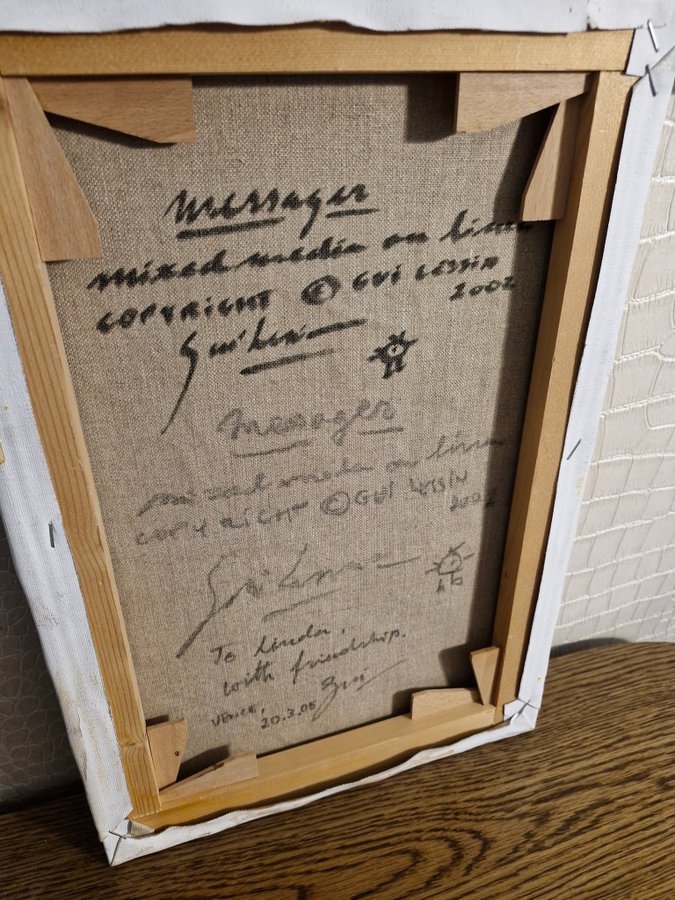 Messager
mixed media on linen
COPYRIGHT © GUI LESSIN
2002
Gui Lessin
Messager
mixed media on linen
COPYRIGHT © GUI LESSIN
2002
Gui Lessin
To Linda,
with friendship.
Venice, Gui
20.3.05